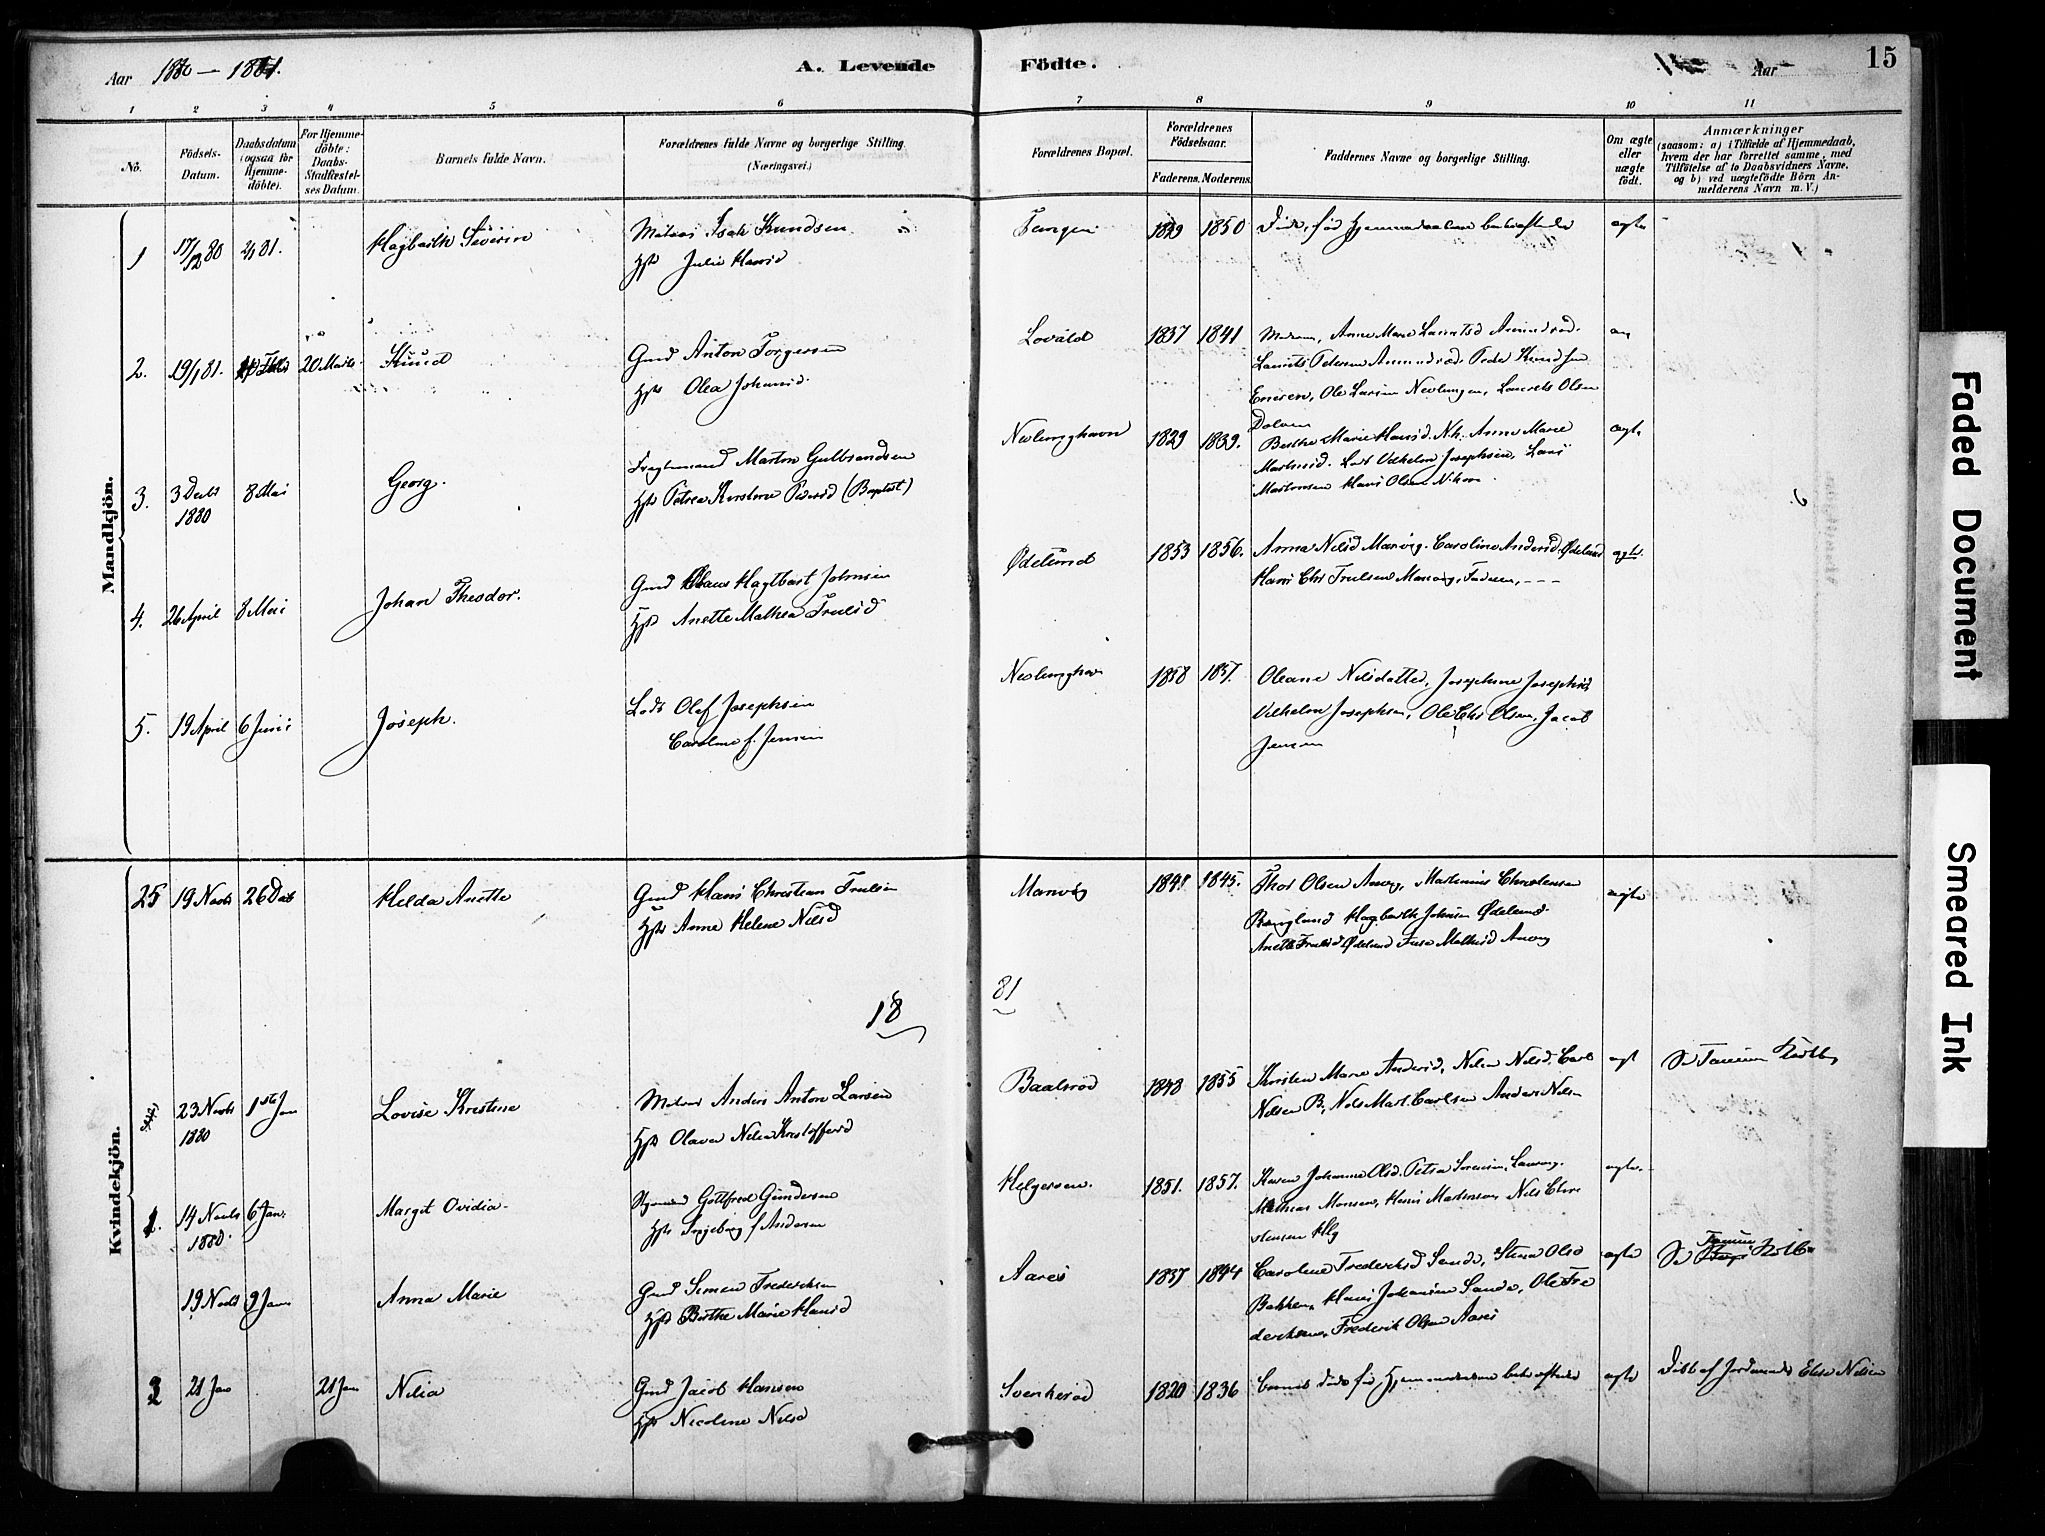 Aar 1880 — 1881.
A. Levende Födte.
Aar
15
1 2 3 4 5 6 7 8 9 10 11
No.
Födsels-Datum.
Daabsdatum (ogsaa for Hjemme-döbte).
For Hjemme-döbte: Daabs-Stadfæstel-ses Datum.
Barnets fulde Navn.
Forældrenes fulde Navne og borgerlige Stilling. (Næringsvei.)
Forældrenes Bopæl.
Forældrenes Födselsaar.
Faderens. Moderens.
Faddernes Navne og borgerlige Stilling.
Om ægte eller uægte födt.
Anmærkninger (saasom: a) i Tilfælde af Hjemmedaab, hvem der har forrettet samme, med Tilföielse af to Daabsvidners Navne. og b) ved uægtefödte Börn Anmelderens Navn m. V.)
Mandkjön.
1 17/12 80 2/1 81. Hagbarth Severin
Matros Isak Knudsen
Hst Julie Hansd
Tangen 1829 1850 ægte
2. 19/1 81. 20 Marts Knud
Gmd Anton Torgersen
Hst Olea Johansd.
Lovald 1837 1841
Anne Marie Lauritsd Amundrød.
Laurits Pedersen Amundrød. Peder Knudsen
Ole Larsen Nevlungen, Laurits Olsen
Dolven
3. 3 Decbr 1880 8 Mai Georg.
Fragtemand Martin Gulbrandsen
Hst Petrea Kirstine Pedersd (Baptist)
Nevlunghavn 1829 1839. ægte
Berthe Marie Hansd. N.h. Anne Marie
Martinsd. Carl Vilhelm Josephsen, Lars
Martinsen Hans Olsen N.havn
4. 26 April 8 Mai Johan Theodor.
Gmd Claus Hagtbart Johnsen
Hst Anette Mathea Trulsd
Ødelund 1853 1856. ægte.
Anna Nilsd Manvig. Caroline Andersd. Ødelund
Hans Chr Trulsen Manvig, Faderen, - - -
5. 19 April 6 Juni Joseph.
Lods Olaf Josephsen
Caroline f. Jensen
Nevlunghavn 1858 1857.
Oleane Nilsdatter, Josephine Josephsd,
Vilhelm Josephsen, Ole Chr Olsen, Jacob
Jensen
Kvindekjön.
25 19 Novb 26 Decb Helda Anette
Gmd Hans Christian Trulsen
Hst Anne Helene Nilsd
Manvig 1848 1845. ægte
Thor Olsen Anvig, Martinius Christensen
Berglund Hagbarth Johnsen Ødelund.
Anette Trulsd Ødelund Mathisd Anvig
18 81
23 Novb 1880 1ste Jan Lovise Kristine
Matros Anders Anton Larsen
Hst Olava Nilea Kristoffersd
Baalsrød 1848 1855 ægt
Kirsten Marie Andersd, Nilea Nilsd, Carl
Nilsen B, Nils Mart. Carlsen Anders Nilsen
1. 14 Novb 1880. 6 Jan. Margit Ovidia.
Gottfred Gundersen
Hst Ingeborg f Andersen
Helgeroen. 1851. 1857. ægte.
Karen Johanne Olsd. Petra Sorensen, Laurvig.
Mathias Monsen, Hans Martinsen, Nils Chri
stensen Hlg
19 Novb 9 Jan Anna Marie
Gmd Simen Frederiksen
Hst Berthe Marie Hansd
Aarøs 1837 1844 ægte
Caroline Frederiksd Sande, Stina Olsd
Bakken, Hans Johansen Sande, Ole Fre
deriksen, Frederik Olsen Aarøs
2 21 Jan 21 Jan Nilia
Gmd Jacob Hansen
Hst Nicoline Nilsd
Svenkerød 1820 1836 ægte
Døbt af Jordmoder Elise Nilsen
Faded Document
Smeared Ink